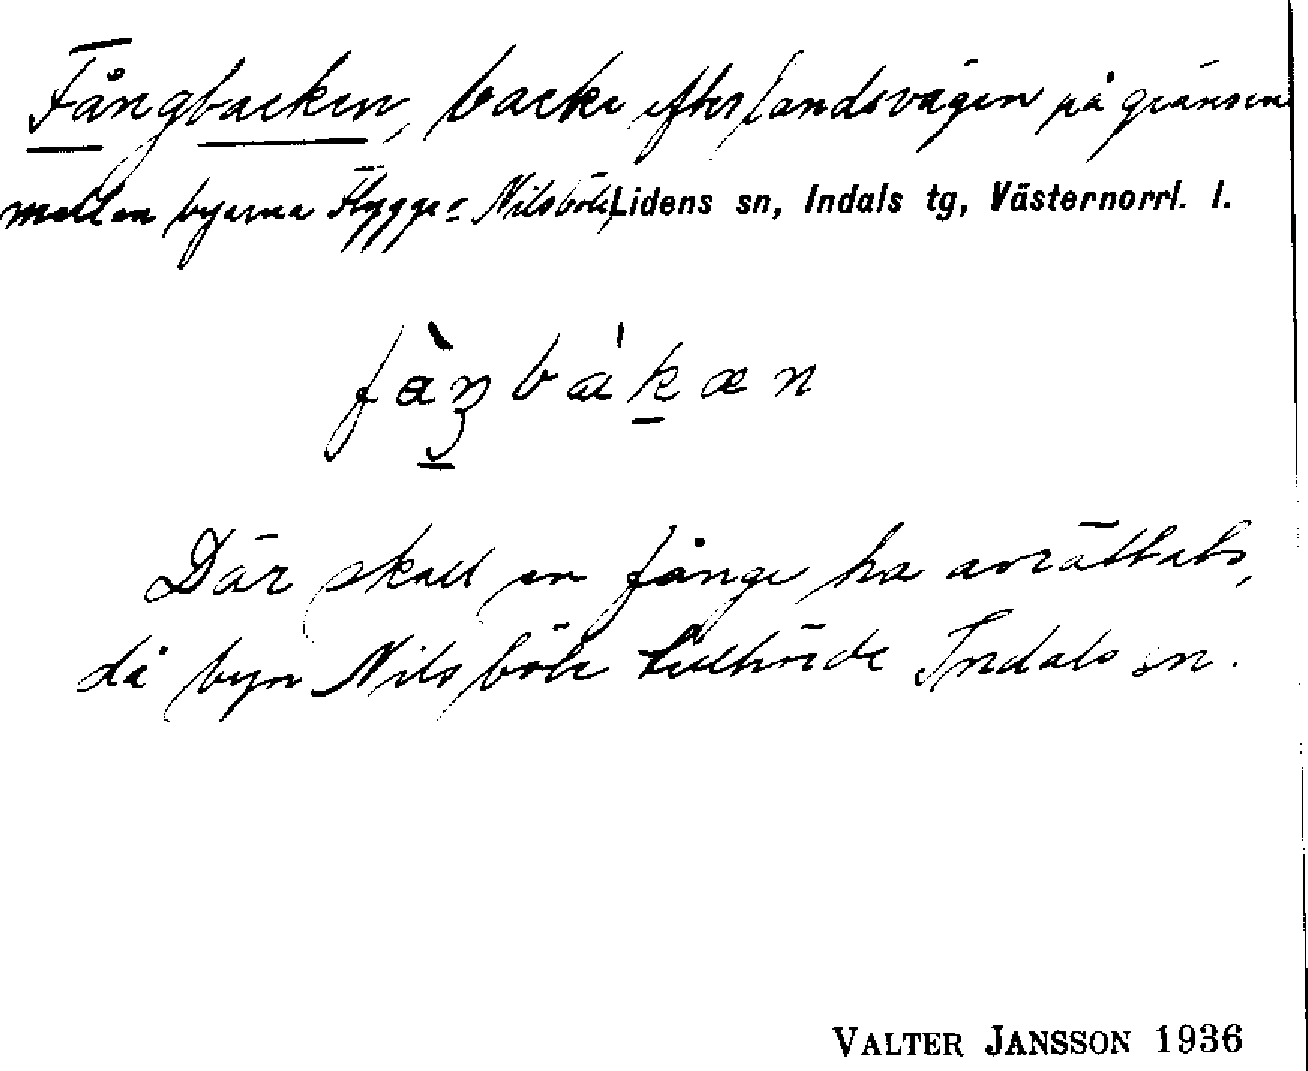 Fångbacken, backe efter landsvägen på gränsen
mellan byarna Flygge o Nilsböle, Lidens sn, Indals tg, Västernorrl. l.
Där skall en fånge ha avrättats,
då byn Nilsböle tillhörde Indals sn.
VALTER JANSSON 1936